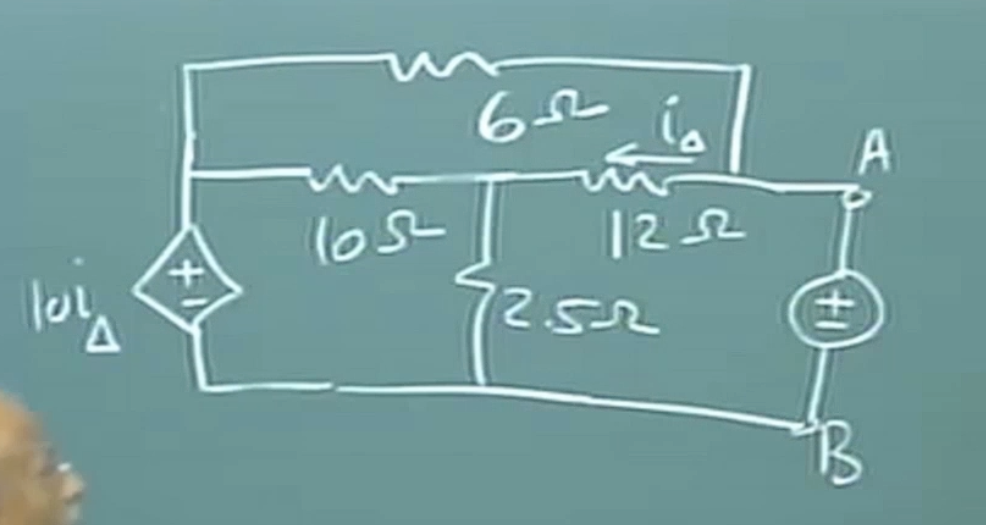 6Ω
i△
A
10Ω
12Ω
+
-
10i△
2.5Ω
+
-
B